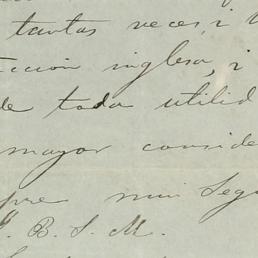 tantas veces, i
ccion inglesa, i
de toda utilid
mayor conside
pre mui Segu
B. S. M.